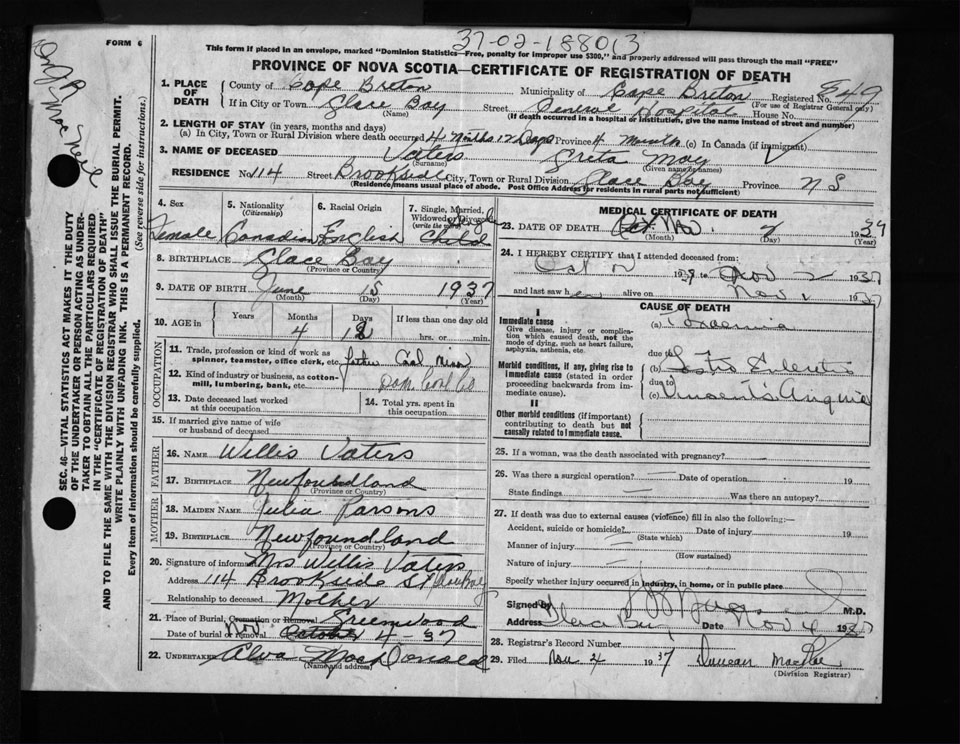 37-02-188013
FORM 6
This form if placed in an envelope, marked "Dominion Statistics—Free, penalty for improper use $300," and properly addressed will pass through the mail "FREE"
PROVINCE OF NOVA SCOTIA—CERTIFICATE OF REGISTRATION OF DEATH
1. PLACE OF DEATH
County of Cape Breton Municipality of Cape Breton Registered No. 549
(For use of Registrar General only)
If in City or Town Glace Bay Street General Hospital House No.
(Name) (If death occurred in a hospital or institution, give the name instead of street and number)
2. LENGTH OF STAY (in years, months and days)
(a) In City, Town or Rural Division where death occurred 4 Months 12 Days Province 4 Months (c) In Canada (if immigrant)
3. NAME OF DECEASED Vaters Greta May
(Surname) (Given name or names)
RESIDENCE No. 114 Street Brookside City, Town or Rural Division Glace Bay Province N S
(Residence means usual place of abode. Post Office Address for residents in rural parts not sufficient)
4. Sex
Female
5. Nationality
(Citizenship)
Canadian
6. Racial Origin
English
7. Single, Married, Widowed or Divorced
(write the word)
Single
Child
8. BIRTHPLACE Glace Bay
(Province or Country)
9. DATE OF BIRTH June 15 1937
(Month) (Day) (Year)
10. AGE in Years Months Days If less than one day old
4 hrs. or min.
OCCUPATION
11. Trade, profession or kind of work as spinner, teamster, office clerk, etc. father Coal Miner
12. Kind of industry or business, as cotton-mill, lumbering, bank, etc. Dom Coal Co
13. Date deceased last worked at this occupation
14. Total yrs. spent in this occupation
15. If married give name of wife or husband of deceased
FATHER
16. NAME Willis Vaters
17. BIRTHPLACE Newfoundland
(Province or Country)
MOTHER
18. MAIDEN NAME Julia Parsons
19. BIRTHPLACE Newfoundland
(Province or Country)
20. Signature of informant Mrs Willis Vaters
Address 114 Brookside St
Relationship to deceased Mother
21. Place of Burial, Cremation or Removal Greenwood
Date of burial or removal Nov. October 4-37
22. UNDERTAKER Alva MacDonald
(Name and address)
MEDICAL CERTIFICATE OF DEATH
23. DATE OF DEATH Oct Nov. 2 1937
(Month) (Day) (Year)
24. I HEREBY CERTIFY that I attended deceased from:
Oct 1937 to Nov 2 1937
and last saw her alive on Nov 1 1937
CAUSE OF DEATH
I
Immediate cause
Give disease, injury or complication which caused death, not the mode of dying, such as heart failure, asphyxia, asthenia, etc.
(a) Toxaemia
due to
Morbid conditions, if any, giving rise to immediate cause (stated in order proceeding backwards from immediate cause).
(b) Gastro Enteritis
due to
(c) Vincent's Angina
II
Other morbid conditions (if important) contributing to death but not causally related to immediate cause.
25. If a woman, was the death associated with pregnancy?
26. Was there a surgical operation? — Date of operation 19
State findings — Was there an autopsy?
27. If death was due to external causes (violence) fill in also the following:—
Accident, suicide or homicide? Date of injury 19
(State which)
Manner of injury
(How sustained)
Nature of injury
Specify whether injury occurred in industry, in home, or in public place
Signed by M.D.
Address Glace Bay Date Nov 4 1937
28. Registrar's Record Number
29. Filed Nov 4 1937 Duncan MacRae
(Division Registrar)
SEC. 46—VITAL STATISTICS ACT MAKES IT THE DUTY
OF THE UNDERTAKER OR PERSON ACTING AS UNDERTAKER
TO OBTAIN ALL THE PARTICULARS REQUIRED
IN THE "CERTIFICATE OF REGISTRATION OF DEATH"
AND TO FILE THE SAME WITH THE DIVISION REGISTRAR WHO SHALL ISSUE THE BURIAL PERMIT.
WRITE PLAINLY WITH UNFADING INK. THIS IS A PERMANENT RECORD.
Every item of information should be carefully supplied. (See reverse side for instructions.)